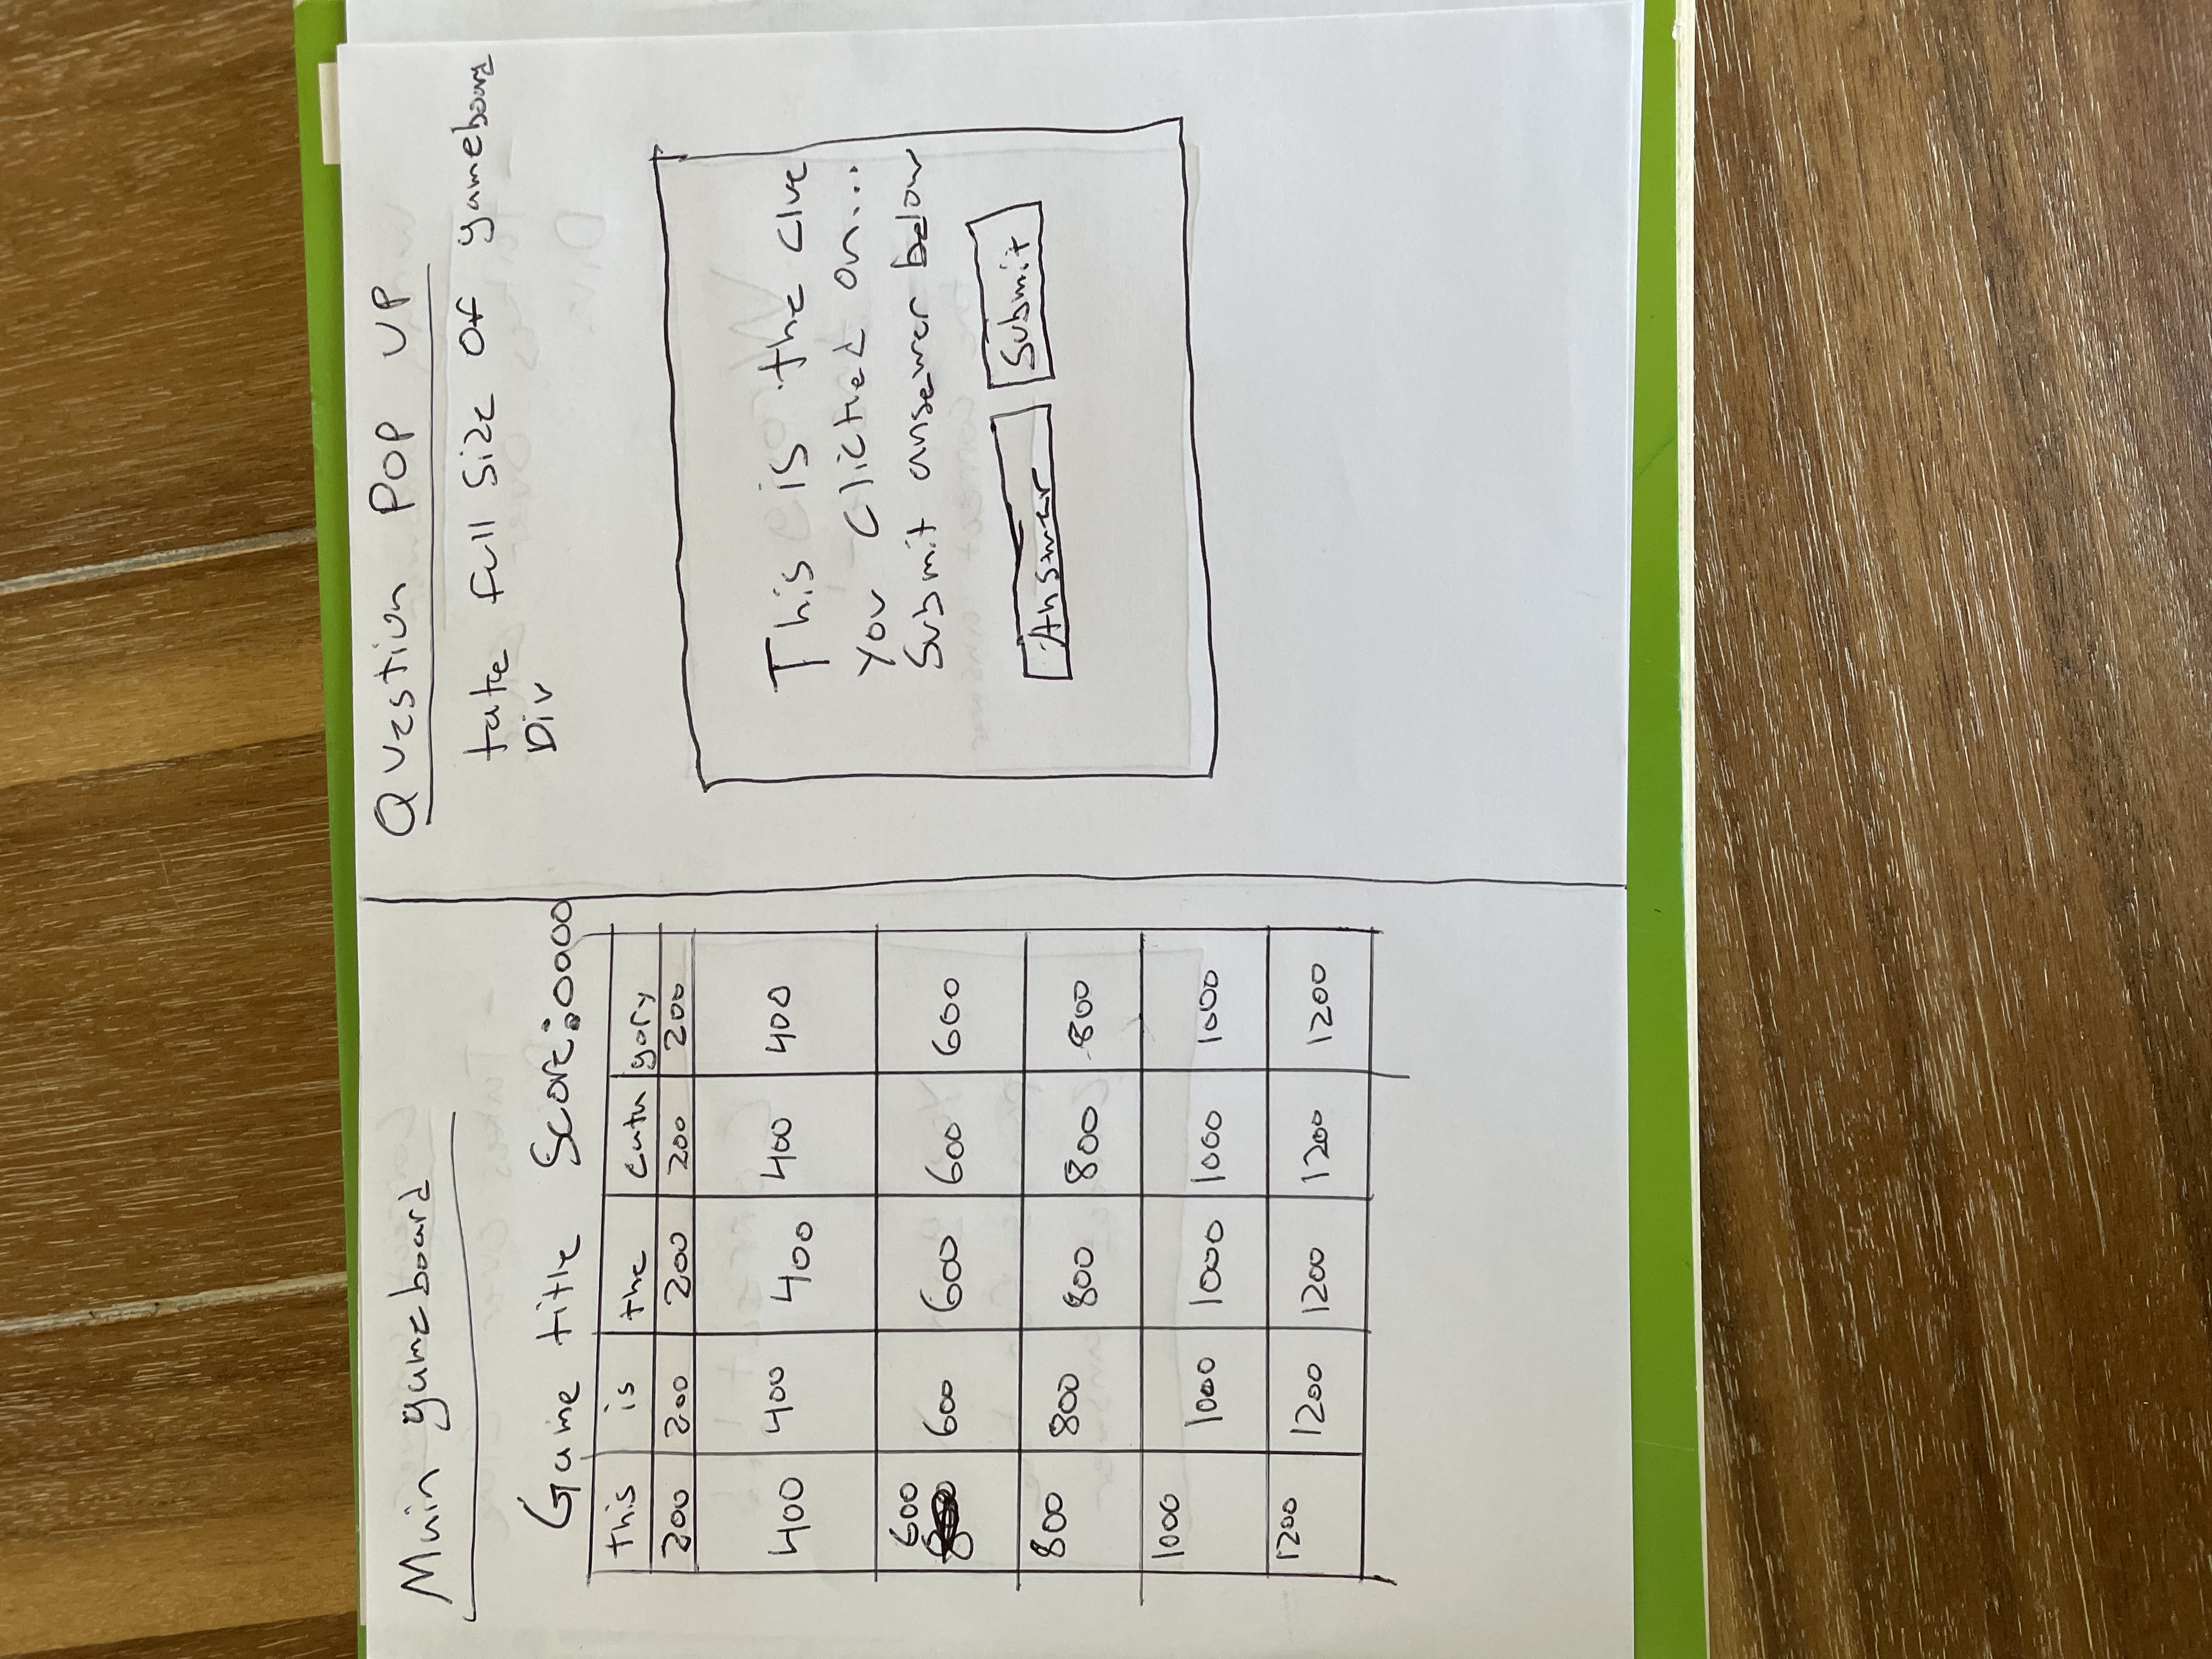 Main gameboard
Game title Score:0000
this is the cata gory
200 200 200 200 200
400 400 400 400 400
600
600 600 600 600
800 800 800 800 800
1000 1000 1000 1000 1000
1200 1200 1200 1200 1200
Question POP UP
take full size of gameboard
Div
This is the clue
you clicked on...
Submit ansewer below
Answer Submit